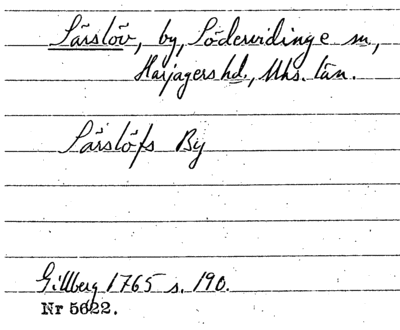 Särslöv, by, Södervidinge sn,
Harjagers hd., Mhs. län.
Särslöfs By
Gillberg 1765 s. 190.
Nr 5622.